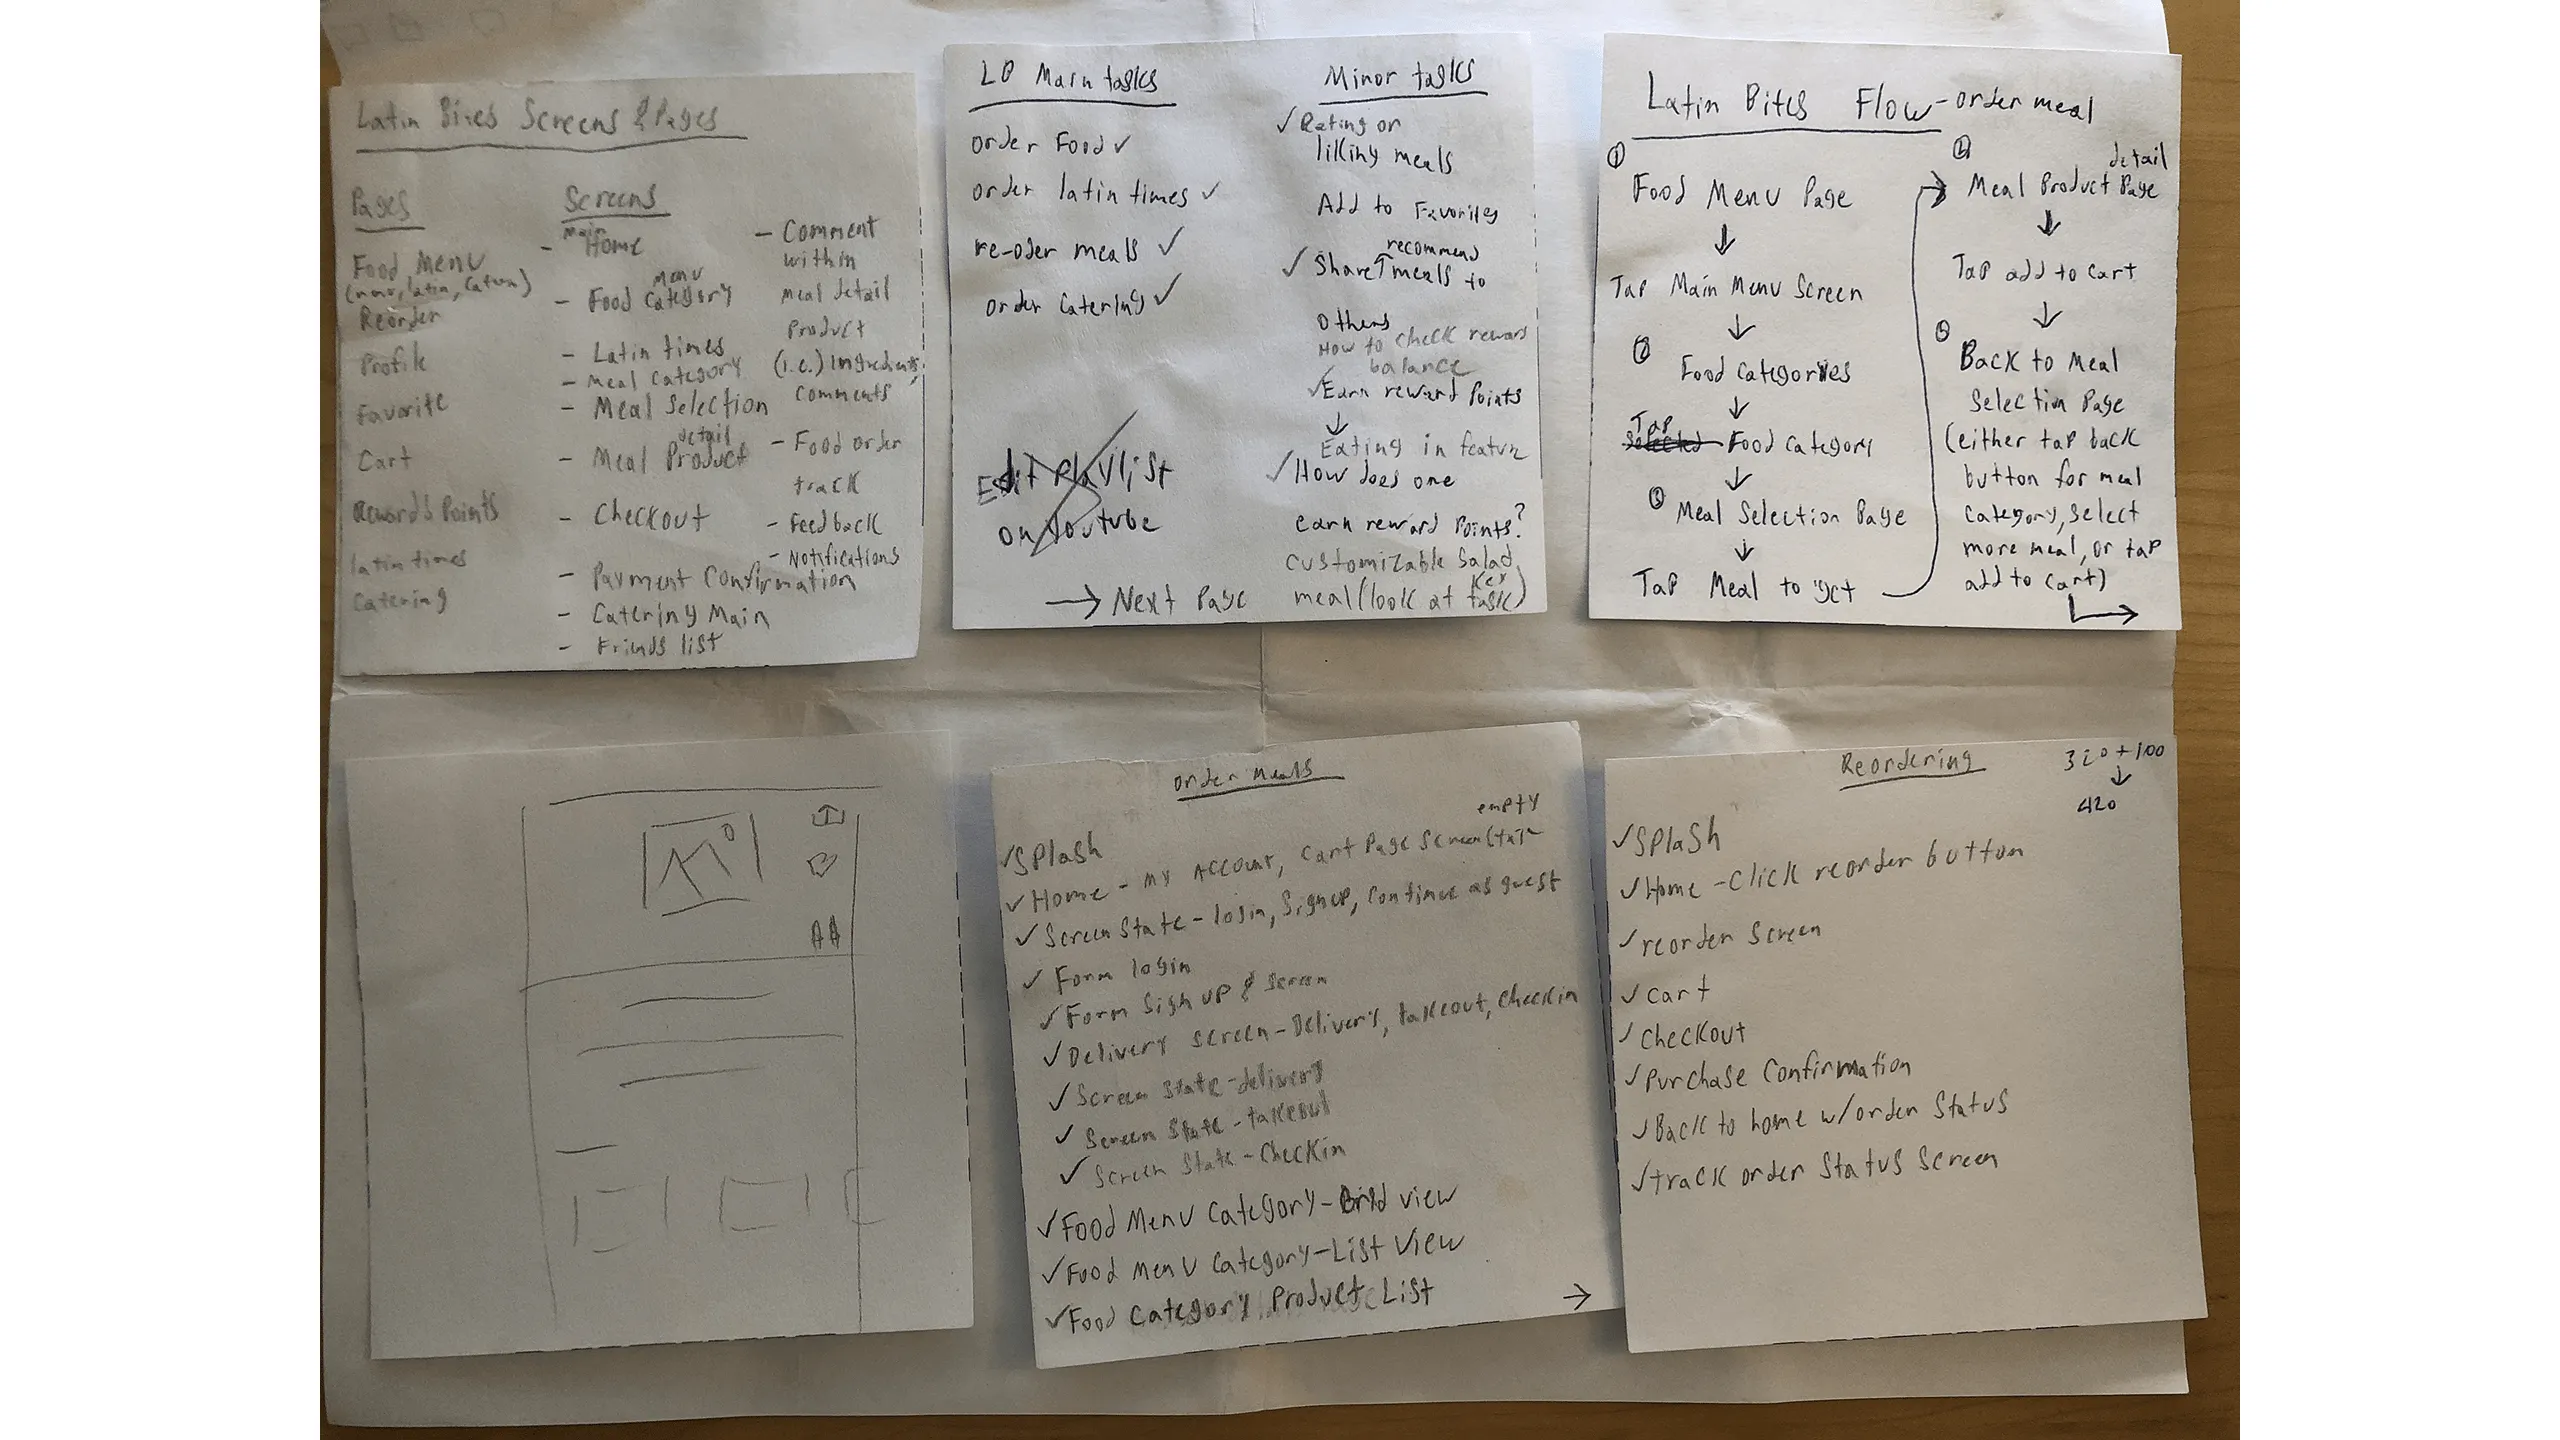 Latin Bites Screens & Pages
Pages
Food Menu
Reorder
Profile
Favorite
Cart
Rewards Points
latin times
Catering
Screens
- Main Home
- Food Menu Category
- Latin times
- Meal Category
- Meal Selection
- Meal Product detail
- Checkout
- Payment Confirmation
- Catering Main
- Friends list
- Comment
within
meal detail
Product
(i.e.) Ingredients,
comments
- Food order
track
- Feedback
- Notifications
Main tasks
order Food ✓
order latin times ✓
re-oder meals ✓
order Catering ✓
Edit Playlist
on Youtube
→ Next Page
Minor tasks
✓ Rating or
liking meals
Add to Favorites
recommend
✓ Share ↑ meals to
Others
How to check rewars
balance
✓ Earn reward Points
↓
Eating in featur
✓ How does one
earn reward Points?
customizable Salad
meal (look at key task)
Latin Bites Flow - order meal
① Food Menu Page
↓
Tap Main Menu Screen
↓
② Food Categories
↓
Tap
Selected Food Category
↓
③ Meal Selection Page
↓
Tap Meal to get
④ detail
Meal Product Page
↓
Tap add to cart
↓
⑤ Back to Meal
Selection Page
(either tap back
button for meal
category, select
more meal, or tap
add to cart)
Order Meals
empty
✓ Splash
✓ Home - My Account, Cart Page Screen
✓ Screen State - login, Signup, Continue as guest
✓ Form login
✓ Form Sign up & Screen
✓ Delivery Screen - Delivery, takeout, Checkin
✓ Screen State - delivery
✓ Screen State - takeout
✓ Screen State - Checkin
✓ Food Menu Category - Grid view
✓ Food Menu Category - List View
✓ Food Category Product List
→
Reordering
320 + 100
↓
420
✓ Splash
✓ Home - Click reorder button
✓ reorder Screen
✓ Cart
✓ Checkout
✓ Purchase Confirmation
✓ Back to home w/order Status
✓ track order Status Screen